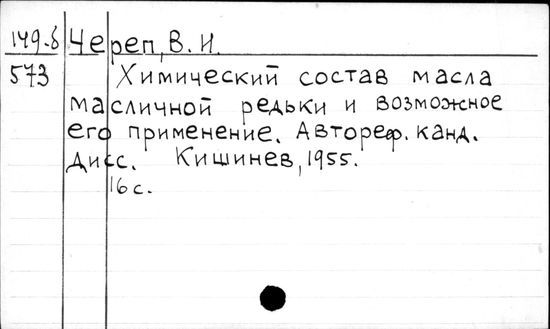 149-б Череп, В. И.
573 Химический состав масла
масличной редьки и возможное
его применение. Автореф. канд.
дисс. Кишинев, 1955.
16 с.